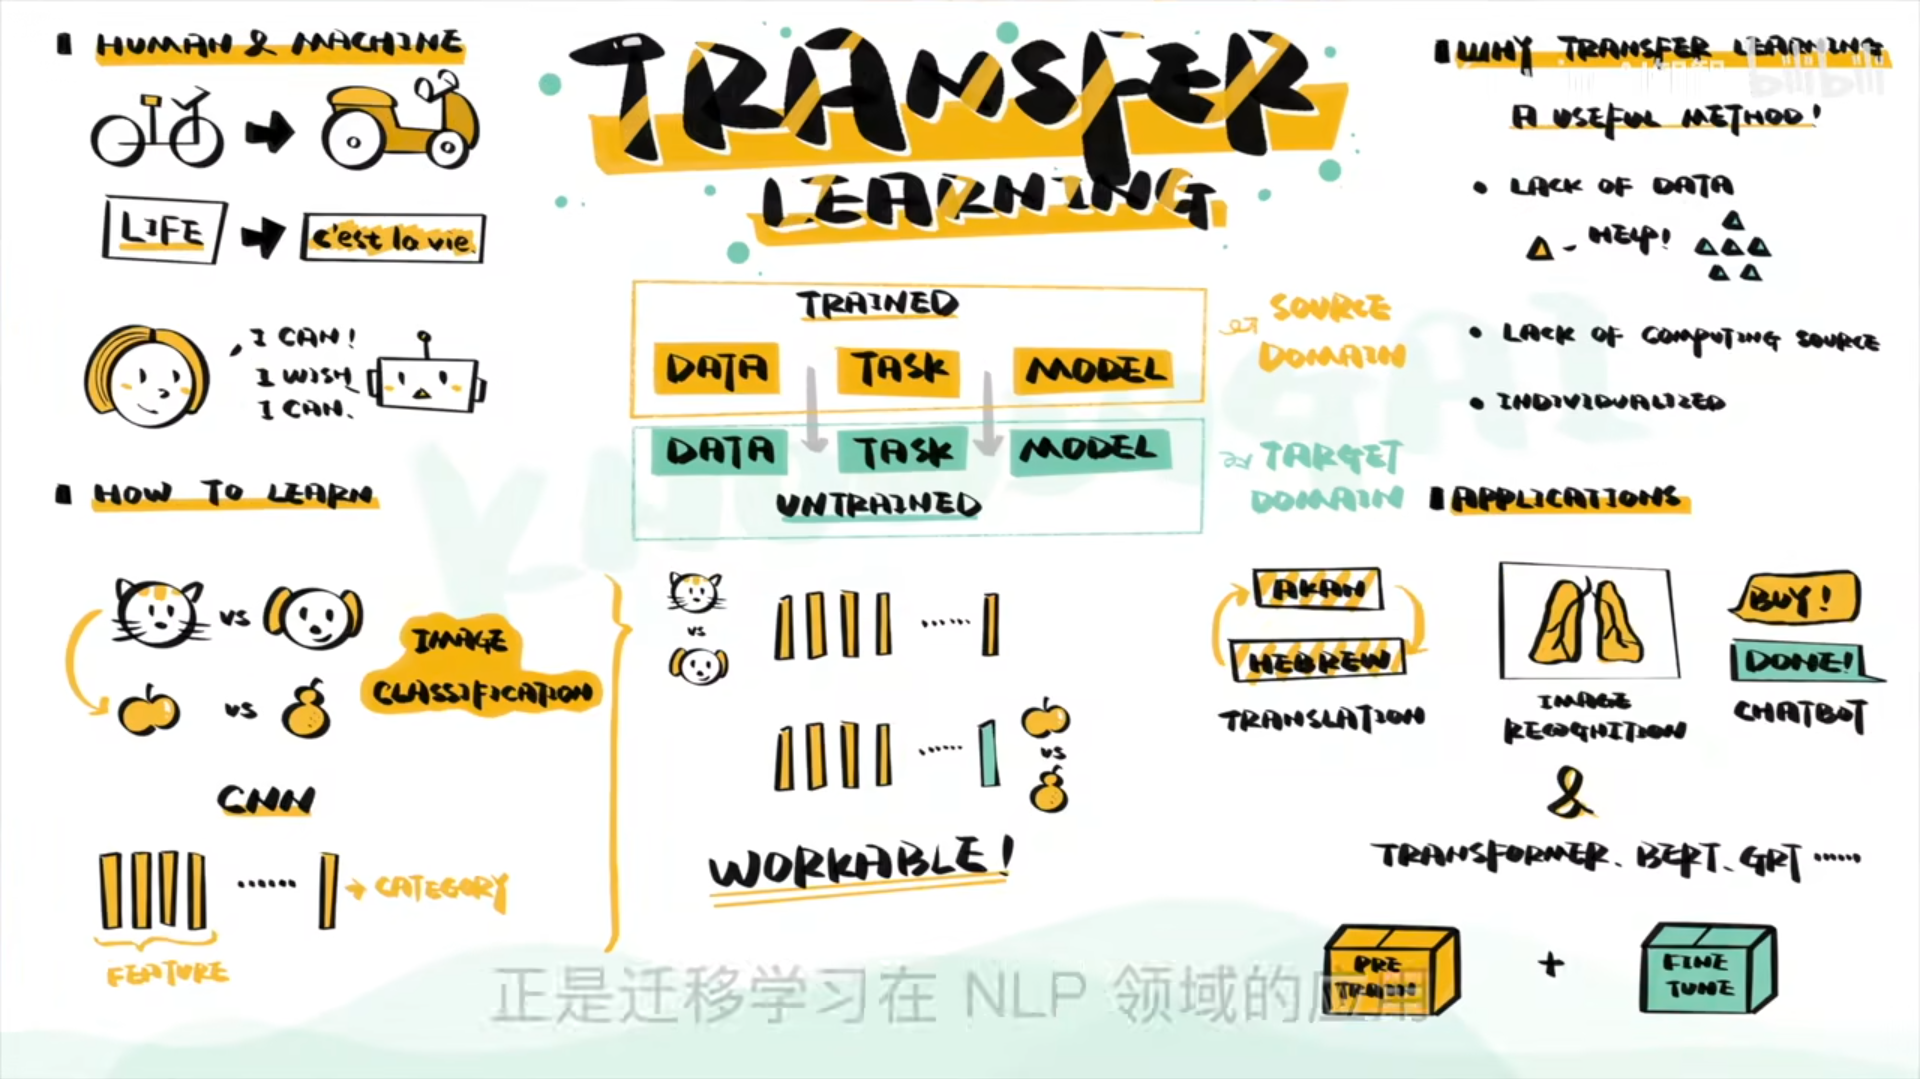 HUMAN & MACHINE
LIFE
c'est la vie.
I CAN!
I WISH
I CAN.
HOW TO LEARN
VS
IMAGE
CLASSIFICATION
VS
CNN
CATEGORY
FEATURE
TRANSFER
LEARNING
TRAINED
DATA TASK MODEL
SOURCE
DOMAIN
DATA TASK MODEL
UNTRAINED
TARGET
DOMAIN
VS
VS
WORKABLE!
WHY TRANSFER LEARNING
bilibili
A USEFUL METHOD!
• LACK OF DATA
HELP!
• LACK OF COMPUTING SOURCE
• INDIVIDUALIZED
APPLICATIONS
AKAN
HEBREW
TRANSLATION
IMAGE
RECOGNITION
BUY!
DONE!
CHATBOT
&
TRANSFORMER、BERT、GPT ......
PRE
TRAIN
+
FINE
TUNE
正是迁移学习在 NLP 领域的应用